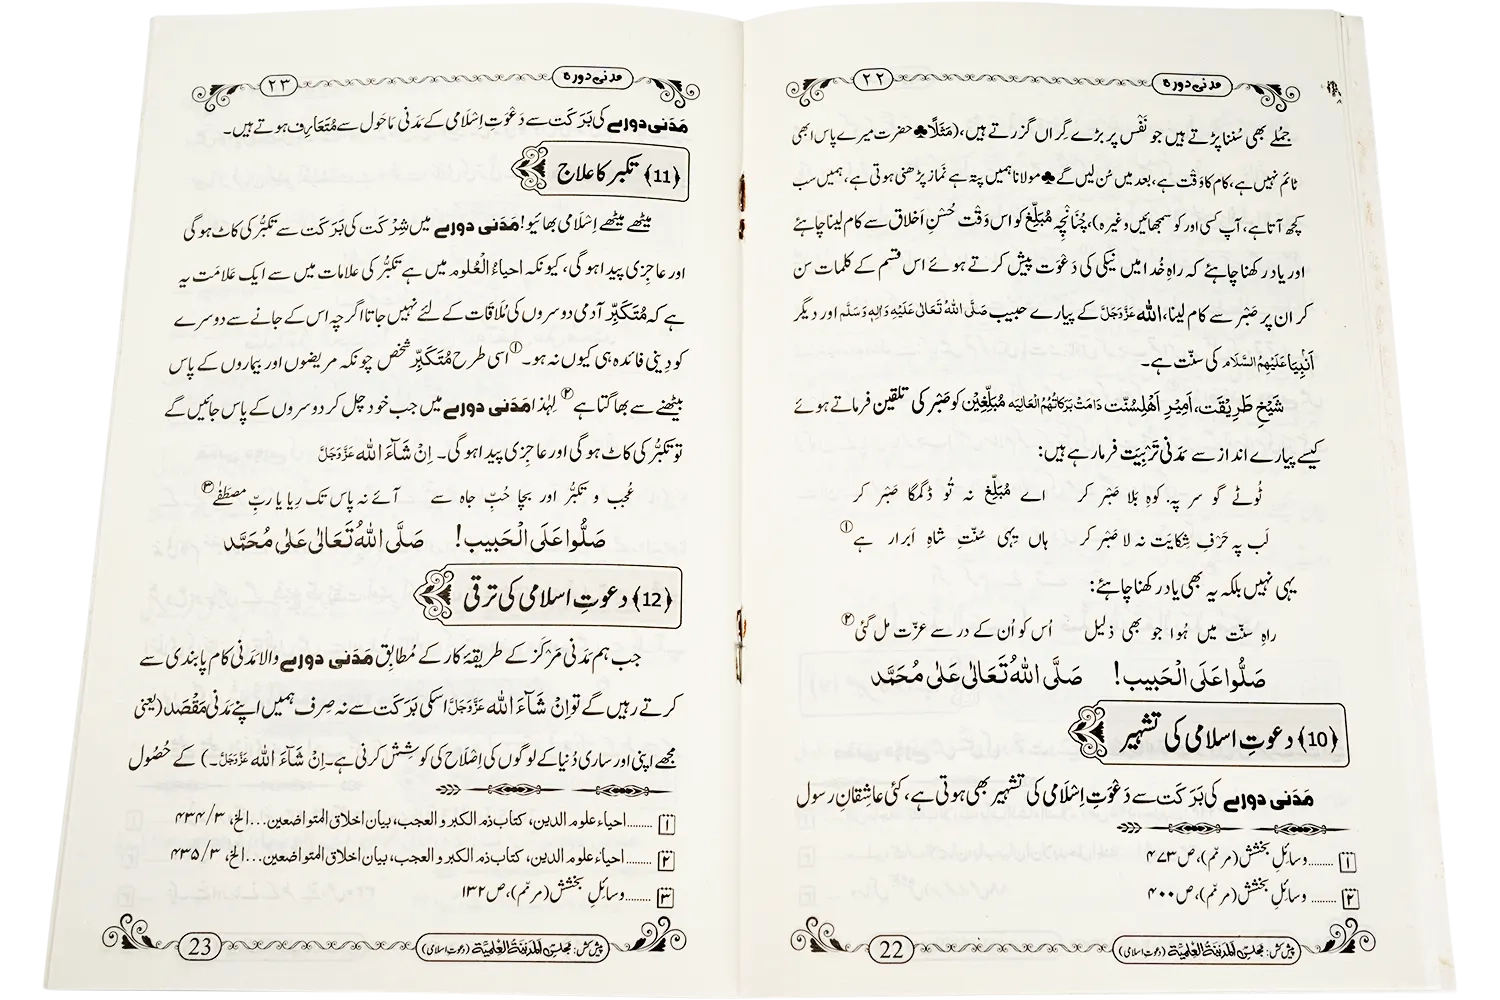 مدنی دورہ ۲۲
جملے بھی سُننا پڑتے ہیں جو نَفْس پر بڑے گِراں گزرتے ہیں، (مَثَلًا♣حضرت میرے پاس ابھی
ٹائم نہیں ہے، کام کا وَقْت ہے، بعد میں سُن لیں گے♣مولانا ہمیں پتہ ہے نَماز پڑھنی ہوتی ہے، ہمیں سب
کچھ آتا ہے، آپ کسی اور کو سمجھائیں وغیرہ)، چُنَانْچِہ مُبَلِّغ کو اس وَقْت حُسْنِ اَخلاق سے کام لینا چاہئے
اور یاد رکھنا چاہئے کہ راہِ خُدا میں نیکی کی دَعْوَت پیش کرتے ہوئے اس قسم کے کلمات سن
کر ان پر صَبْر سے کام لینا، اللہ عَزَّوَجَلَّ کے پیارے حبیب صَلَّی اللہُ تَعَالٰی عَلَیْہِ وَاٰلِہٖ وَسَلَّم اور دیگر
اَنْبِیَا عَلَیْہِمُ السَّلَام کی سنّت ہے۔
شَیْخِ طَرِیْقَت، اَمِیْرِ اَہْلِسُنَّت دَامَتْ بَرَکَاتُہُمُ الْعَالِیَہ مُبَلِّغِیْن کو صَبْر کی تلقین فرماتے ہوئے
کیسے پیارے انداز سے مَدَنی تَرْبِیَت فرما رہے ہیں:
ٹُوٹے گو سر پہ کوہِ بَلا صَبْر کر اے مُبَلِّغ نہ تُو ڈگمگا صَبْر کر
لَب پہ حَرْفِ شِکایَت نہ لا صَبْر کر ہاں یہی سُنّتِ شاہِ اَبرار ہے ①
یہی نہیں بلکہ یہ بھی یاد رکھنا چاہئے:
راہِ سنّت میں ہُوا جو بھی ذلیل اُس کو اُن کے در سے عزّت مل گئی ②
صَلُّوا عَلَی الْحَبِیب! صَلَّی اللہُ تَعَالٰی عَلٰی مُحَمَّد
(10) دعوتِ اسلامی کی تشہیر
مَدَنی دورے کی بَرَکَت سے دَعْوَتِ اِسْلَامی کی تشہیر بھی ہوتی ہے، کئی عاشقانِ رسول
۱ ........ وسائلِ بخشش (مرمّم)، ص ۴۷۳
۲ ........ وسائلِ بخشش (مرمّم)، ص ۴۰۰
پیش کش: مجلس اَلْمَدِیْنَۃُ الْعِلْمِیَّۃ (دعوتِ اسلامی) 22
مدنی دورہ ۲۳
مَدَنی دورے کی بَرَکَت سے دَعْوَتِ اِسْلَامی کے مَدَنی مَاحَول سے مُتَعَارِف ہوتے ہیں۔
(11) تکبر کا علاج
میٹھے میٹھے اِسْلَامی بھائیو! مَدَنی دورے میں شِرْکَت کی بَرَکَت سے تکبُّر کی کاٹ ہوگی
اور عاجِزی پیدا ہوگی، کیونکہ احیاءُ الْعُلُوم میں ہے تکبُّر کی علامات میں سے ایک عَلامَت یہ
ہے کہ مُتَکَبِّر آدمی دوسروں کی مُلَاقَات کے لئے نہیں جاتا اگرچہ اس کے جانے سے دوسرے
کو دِینی فائدہ ہی کیوں نہ ہو۔① اسی طرح مُتَکَبِّر شخص چونکہ مریضوں اور بیماروں کے پاس
بیٹھنے سے بھاگتا ہے② لِہٰذا مَدَنی دورے میں جب خود چل کر دوسروں کے پاس جائیں گے
تو تکبُّر کی کاٹ ہوگی اور عاجِزی پیدا ہوگی۔ اِنْ شَآءَ اللہ عَزَّوَجَلَّ
عُجب و تکبُّر اور بچا حُبِّ جاہ سے آئے نہ پاس تک رِیا یا ربِّ مصطَفٰے ③
صَلُّوا عَلَی الْحَبِیب! صَلَّی اللہُ تَعَالٰی عَلٰی مُحَمَّد
(12) دعوتِ اسلامی کی ترقی
جب ہم مَدَنی مَرْکَز کے طریقۂ کار کے مُطابِق مَدَنی دورے والا مَدَنی کام پابندی سے
کرتے رہیں گے تو اِنْ شَآءَ اللہ عَزَّوَجَلَّ اسکی بَرَکَت سے نہ صِرف ہمیں اپنے مَدَنی مَقْصَد (یعنی
مجھے اپنی اور ساری دُنیا کے لوگوں کی اِصْلَاح کی کوشِش کرنی ہے۔ اِنْ شَآءَ اللہ عَزَّوَجَلَّ۔) کے حُصُول
۱ ........ احیاء علوم الدین، کتاب ذم الکبر و العجب، بیان اخلاق المتواضعین...الخ، ۳/ ۴۳۴
۲ ........ احیاء علوم الدین، کتاب ذم الکبر و العجب، بیان اخلاق المتواضعین...الخ، ۳/ ۴۳۵
۳ ........ وسائلِ بخشش (مرمّم)، ص ۱۳۲
پیش کش: مجلس اَلْمَدِیْنَۃُ الْعِلْمِیَّۃ (دعوتِ اسلامی) 23